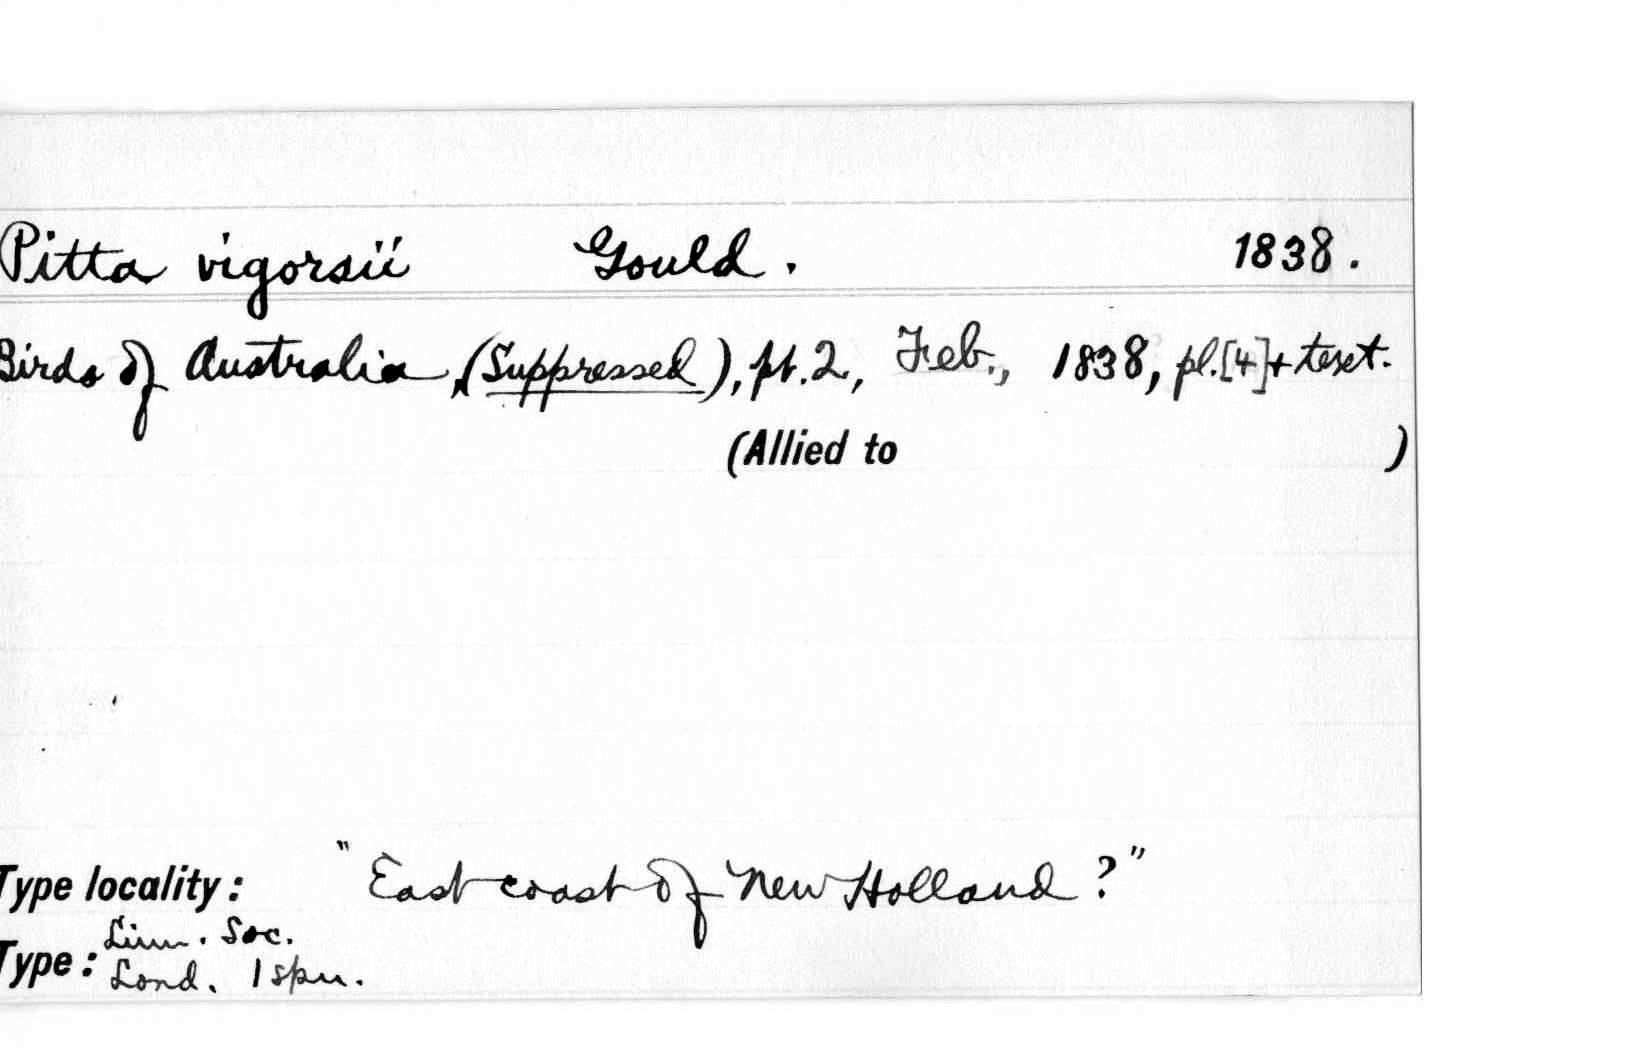 Pitta vigorsii Gould. 1838.
Birds of Australia, (Suppressed), pt.2, Feb., 1838, pl.[4]+ text.
(Allied to )
Type locality: "East coast of New Holland?"
Linn. Soc.
Type: Lond. 1 spn.